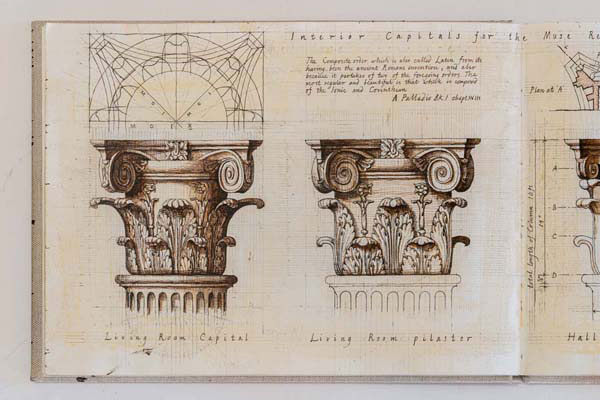 Interior Capitals for the Muse Re
The Composite order which is also called Latin from its
having been the ancient Romans invention, and also
because it partakes of two of the foregoing orders. The
most regular and beautiful is that which is composed
of the Ionic and Corinthian
A Palladio Bk I chapt XVIII
Plan at 'A'
MODULE
A
B
C
D
total length of Column
Living Room Capital
Living Room pilaster
Hall